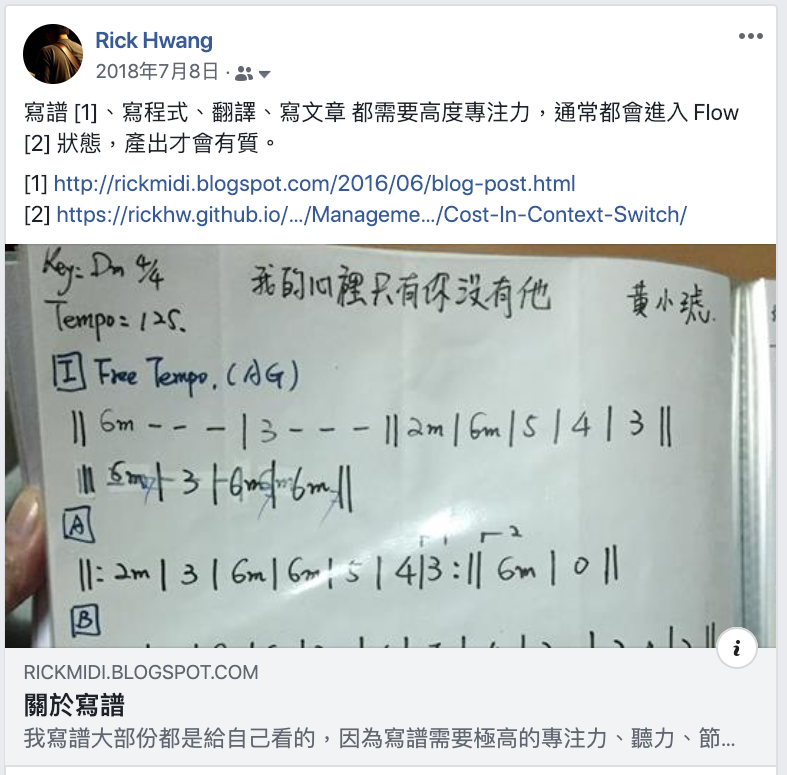 Rick Hwang
2018年7月8日 ·
寫譜 [1]、寫程式、翻譯、寫文章 都需要高度專注力，通常都會進入 Flow
[2] 狀態，產出才會有質。
[1] http://rickmidi.blogspot.com/2016/06/blog-post.html
[2] https://rickhw.github.io/.../Manageme.../Cost-In-Context-Switch/
Key: Dm 4/4
我的心裡只有你沒有他 黃小琥.
Tempo= 125.
I Free Tempo. (AG)
|| 6m - - - | 3 - - - || 2m | 6m | 5 | 4 | 3 ||
6m | 3 | 6m 6m ||
A
1 2
||: 2m | 3 | 6m | 6m | 5 | 4 | 3 :|| 6m | 0 ||
B
i
RICKMIDI.BLOGSPOT.COM
關於寫譜
我寫譜大部份都是給自己看的，因為寫譜需要極高的專注力、聽力、節...